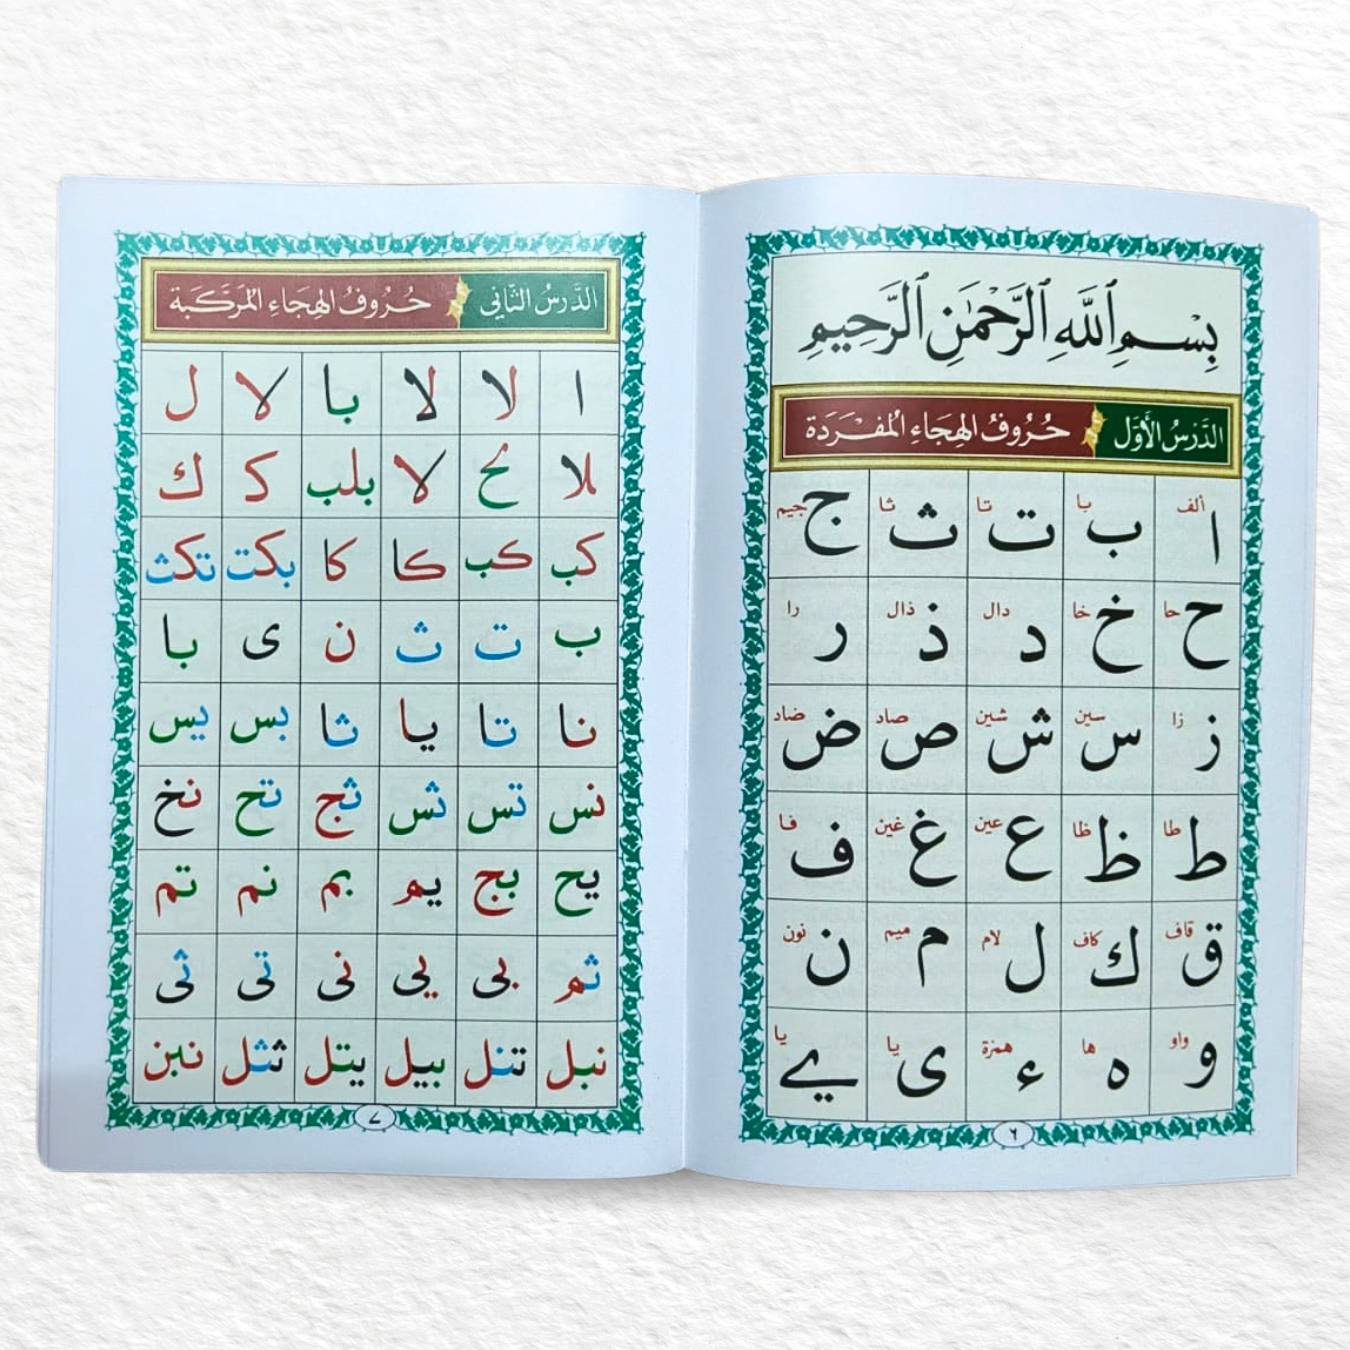 بِسْمِ ٱللَّهِ ٱلرَّحْمَٰنِ ٱلرَّحِيمِ
الدَّرْسُ الأَوَّل حُرُوفُ الهِجَاءِ المُفْرَدَة
ا ألف ب با ت تا ث ثا ج جيم
ح حا خ خا د دال ذ ذال ر را
ز زا س سين ش شين ص صاد ض ضاد
ط طا ظ ظا ع عين غ غين ف فا
ق قاف ك كاف ل لام م ميم ن نون
و واو ه ها ء همزة ى يا ے يا
٦
الدَّرْسُ الثَّانِي حُرُوفُ الهِجَاءِ المُرَكَّبَة
ا لا لا با لا ل
بلب لا ك ك
كب كب كا كا بكت تكث
ب ت ث ن ى با
نا تا يا ثا بس يس
نس تس ثس ثج تح نخ
يح بج يم بم نم تم
ثم بى يى نى تى ثى
نبل تنل بيل يتل ثثل نبن
٧